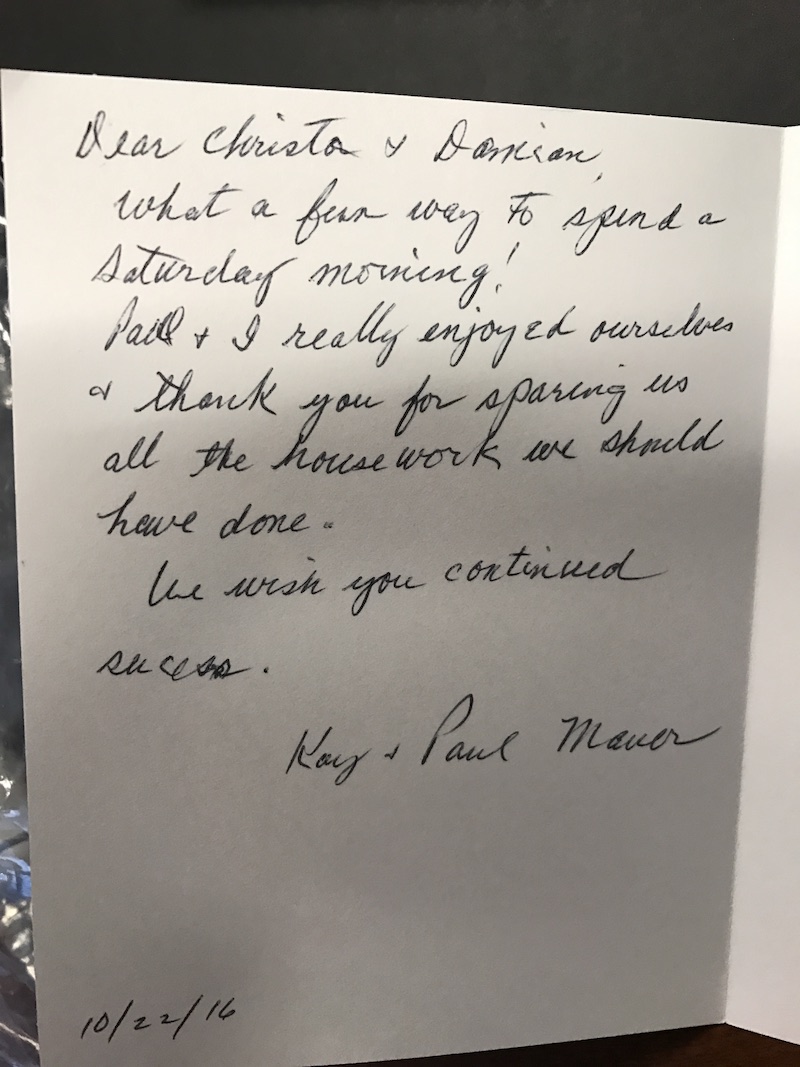 Dear Christa & Damian,
What a fun way to spend a
Saturday morning!
Paul & I really enjoyed ourselves
& thank you for sparing us
all the housework we should
have done.
We wish you continued
sucess.
Kay & Paul
10/22/16